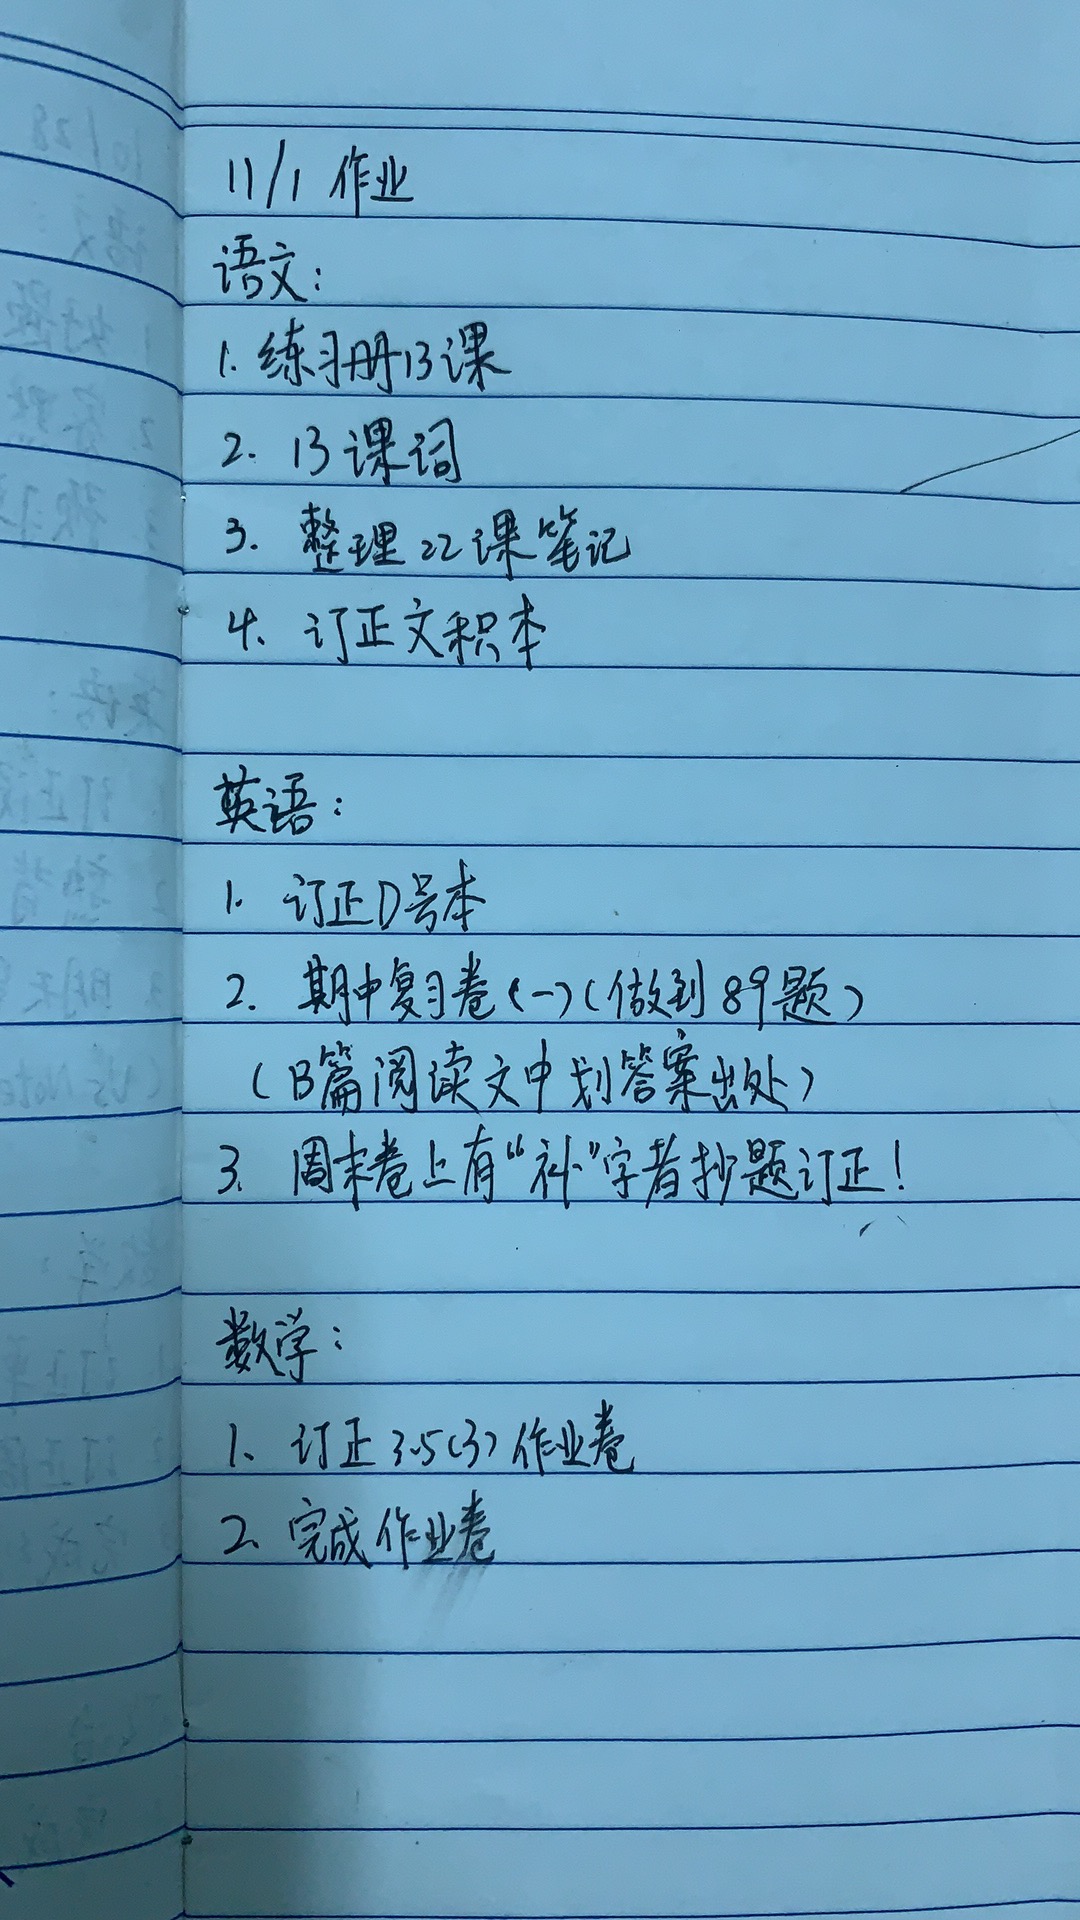 11/1 作业
语文：
1. 练习册13课
2. 13课词
3. 整理22课笔记
4. 订正文积本
英语：
1. 订正D号本
2. 期中复习卷(一)(做到89题)
(B篇阅读文中划答案出处)
3. 周末卷上有“补”字者抄题订正！
数学：
1. 订正3.5(3)作业卷
2. 完成作业卷